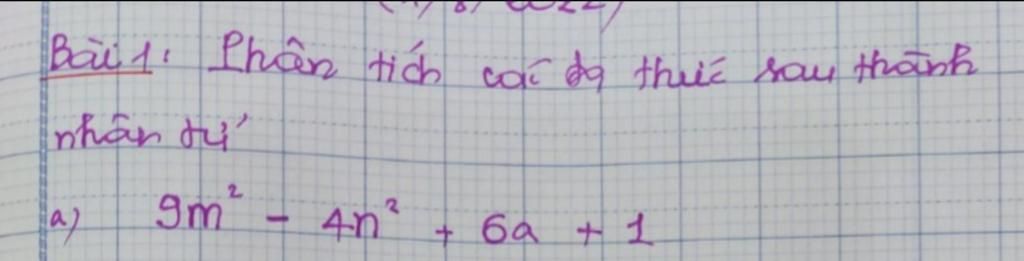 Bài 1: Phân tích các đa thức sau thành
nhân tử
a) 9m² - 4n² + 6a + 1